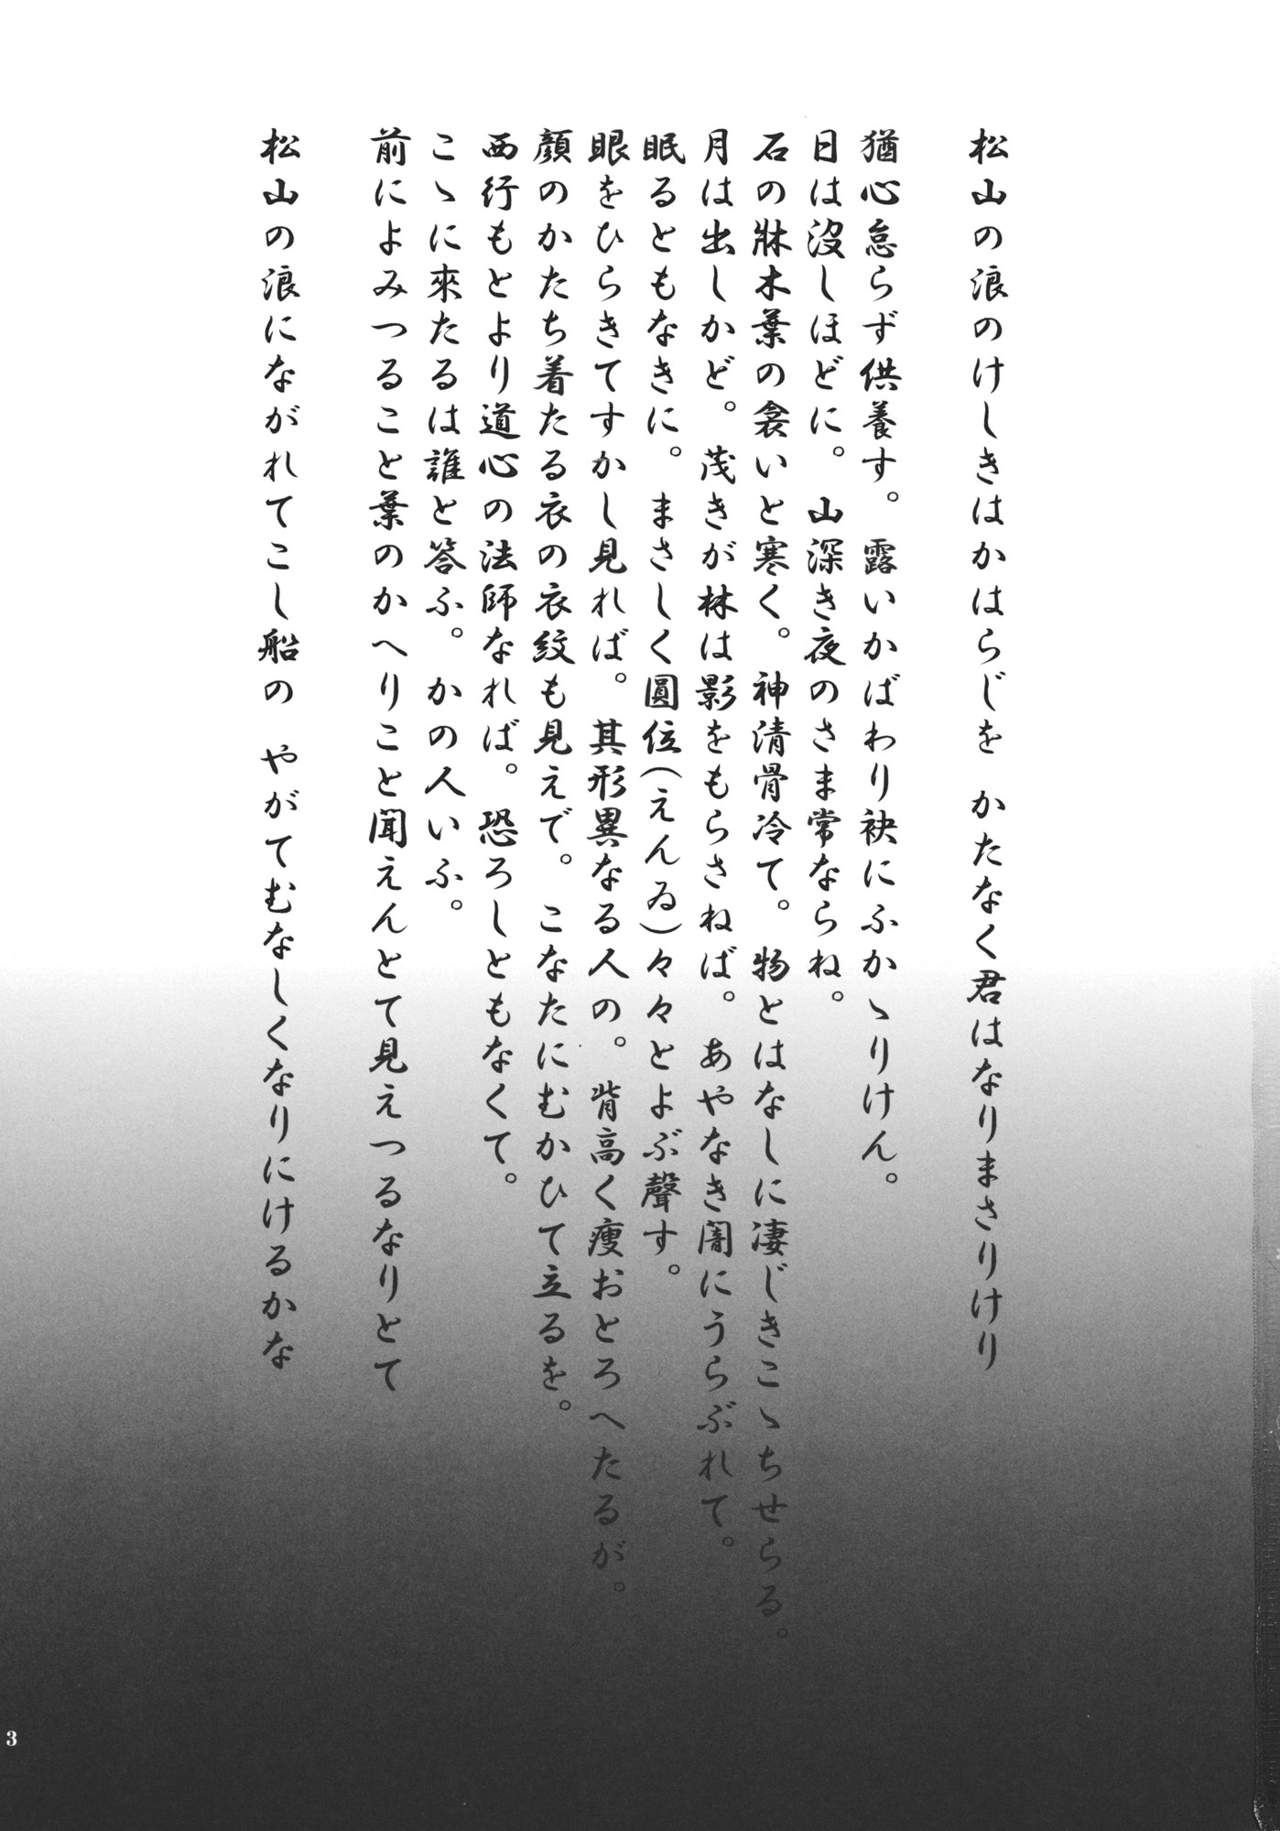 松山の浪のけしきはかはらじを かたなく君はなりまさりけり
猶心怠らず供養す。露いかばわり袂にふかゝりけん。
日は没しほどに。山深き夜のさま常ならね。
石の牀木葉の衾いと寒く。神清骨冷て。物とはなしに凄じきこゝちせらる。
月は出しかど。茂きが林は影をもらさねば。あやなき闇にうらぶれて。
眠るともなきに。まさしく圓位(えんゐ)々々とよぶ聲す。
眼をひらきてすかし見れば。其形異なる人の。背高く痩おとろへたるが。
顏のかたち着たる衣の衣紋も見えで。こなたにむかひて立るを。
西行もとより道心の法師なれば。恐ろしともなくて。
こゝに來たるは誰と答ふ。かの人いふ。
前によみつること葉のかへりこと聞えんとて見えつるなりとて
松山の浪にながれてこし船の やがてむなしくなりにけるかな
3